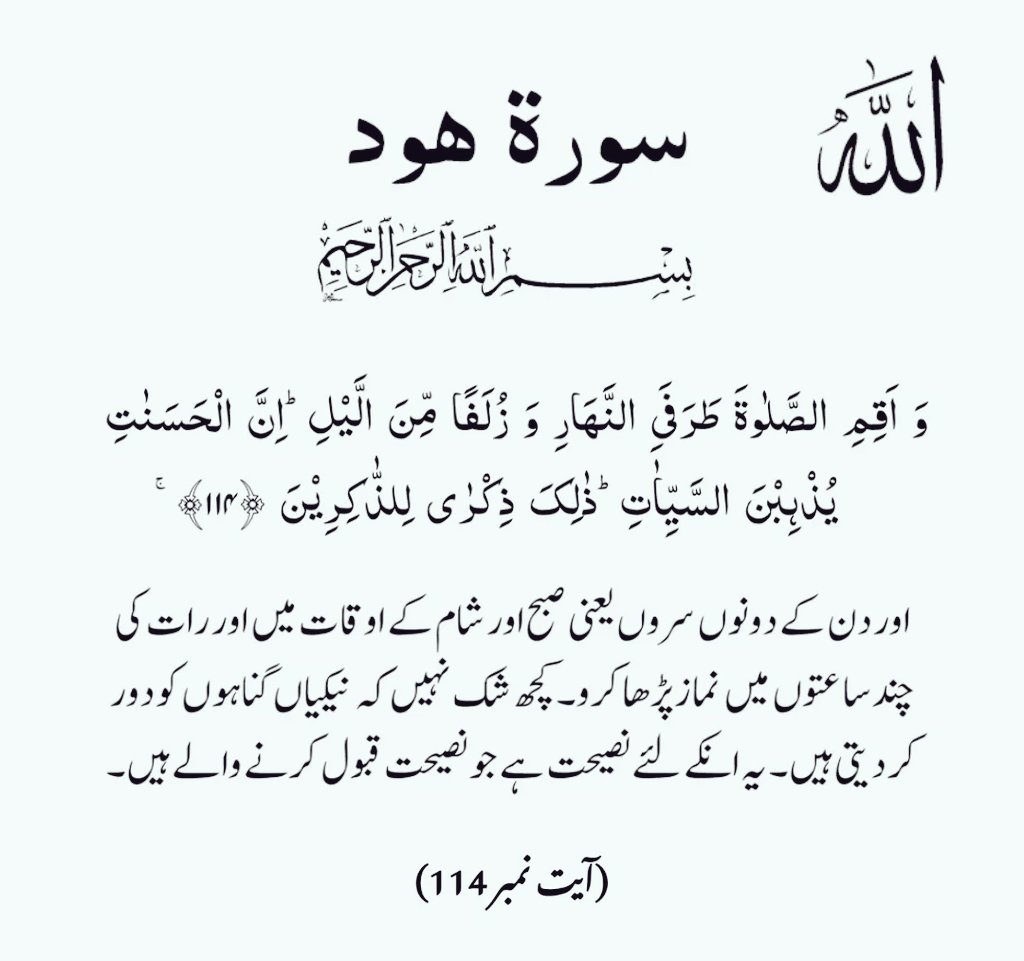 اللّٰهُ
سورة هود
بِسْمِ اللّٰهِ الرَّحْمٰنِ الرَّحِيْمِ
وَ اَقِمِ الصَّلٰوةَ طَرَفَیِ النَّهَارِ وَ زُلَفًا مِّنَ الَّیْلِ ؕ اِنَّ الْحَسَنٰتِ
یُذْهِبْنَ السَّیِّاٰتِ ؕ ذٰلِکَ ذِکْرٰی لِلذّٰکِرِیْنَ ﴿۱۱۴﴾ ۚ
اور دن کے دونوں سروں یعنی صبح اور شام کے اوقات میں اور رات کی
چند ساعتوں میں نماز پڑھا کرو۔ کچھ شک نہیں کہ نیکیاں گناہوں کو دور
کر دیتی ہیں۔ یہ انکے لئے نصیحت ہے جو نصیحت قبول کرنے والے ہیں۔
(آیت نمبر 114)